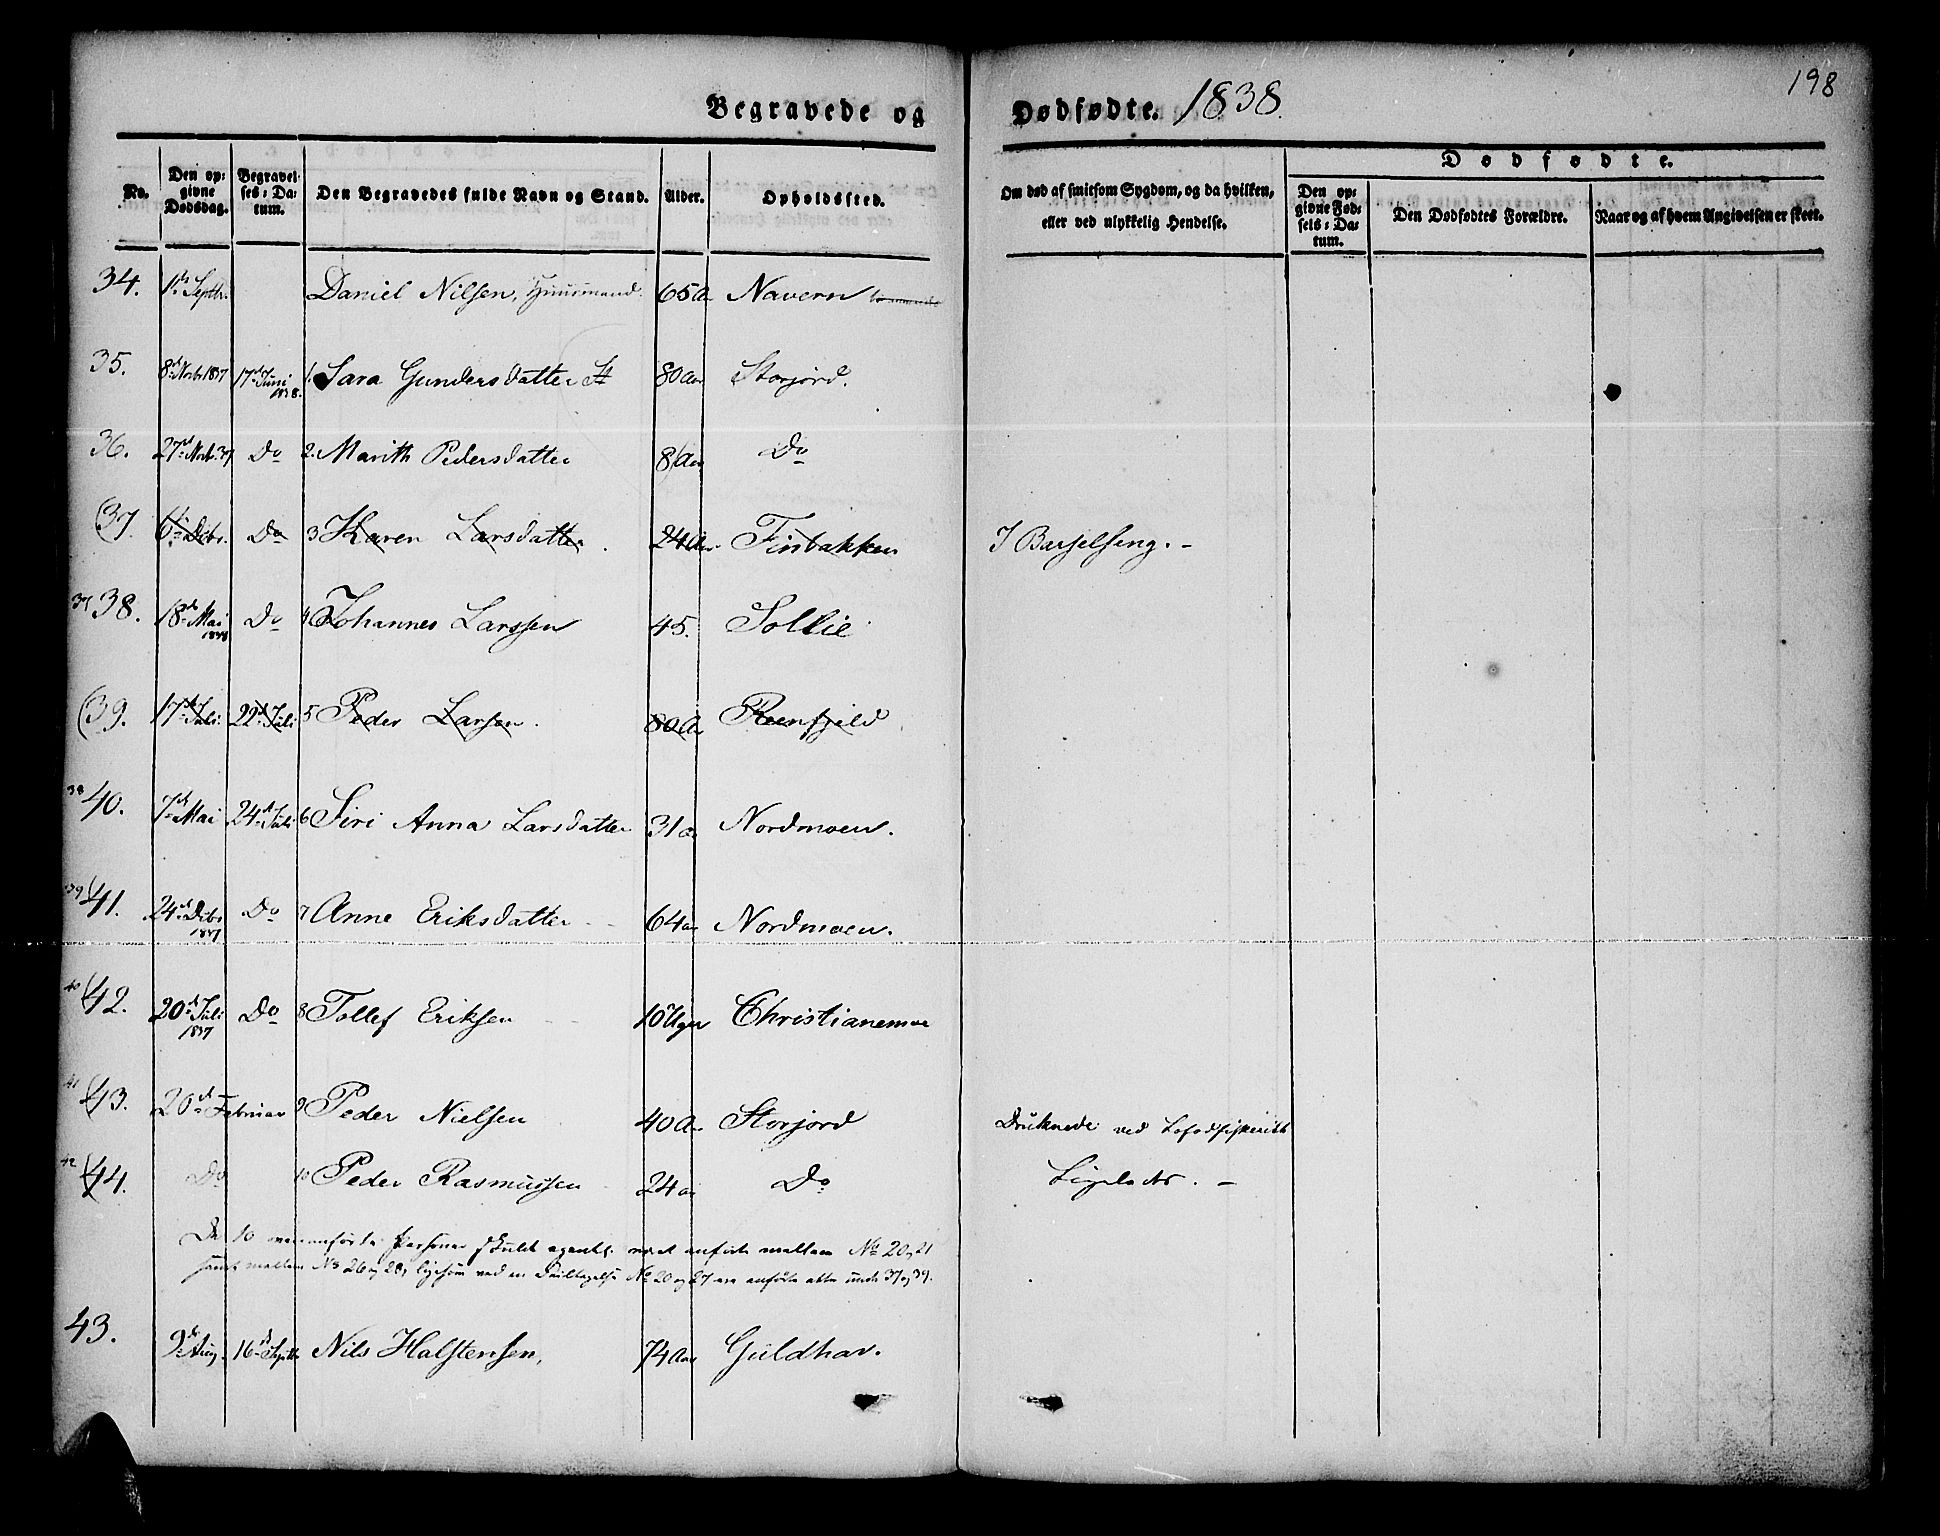 198
Begravede og Dødfødte. 1838.
No. Den opgivne Dødsdag. Begravelses-Datum. Den Begravedes fulde Navn og Stand. Alder. Opholdsted. Om død af smitsom Sygdom, og da hvilken, eller ved ulykkelig Hendelse. Dødfødte.
Den opgivne Fødsels-Datum. Den Dødfødtes Forældre. Naar og af hvem Angivelsen er skeet.
34. 1st Septbr. Daniel Nilsen, Huusmand. 65 A Navern
35. 8d Novbr 1837 17d Juni 1838. 1. Sara Gundersdatter 80 Aar Storjord.
36. 27d Novb. 37 Do 2. Marith Pedersdatter 8 Aar Do
37. 6t Decbr. Do 3 Karen Larsdatter. 24 Aar Finbakken I Barselseng. -
37 38. 18d Mai 1838 Do 4 Johannes Larssen 45. Sollie
39. 17d Juli 22d Juli 5 Peder Larsen. 80 A Reenfjeld
38 40. 7d Mai 24d Juli 6 Siri Anna Larsdatter 31 a Nordmoen.
39 41. 24d Decbr 1837 Do 7 Anne Eriksdatter 64 aar Nordmoen.
40 42. 20d Juli 1837 Do 8 Tollef Eriksen 10 Uger Christianemoe
41 43. 20d Februar 9 Peder Nielsen 40 A. Storjord Druknede ved Lofodfiskeriet
42 44. Do 10 Peder Rasmussen 24 a Do Ligeledes. -
De 10 ovenanførte Personer skulde egentl. været anførte mellem No 20 og 21
samt mellem No 26 og 28, ligesom ved en No 20 og 27 ere anførte atter under 37 og 39.
43. 9d Aug. 16d Septbr Nils Halstensen, 74 Aar Guldhav.